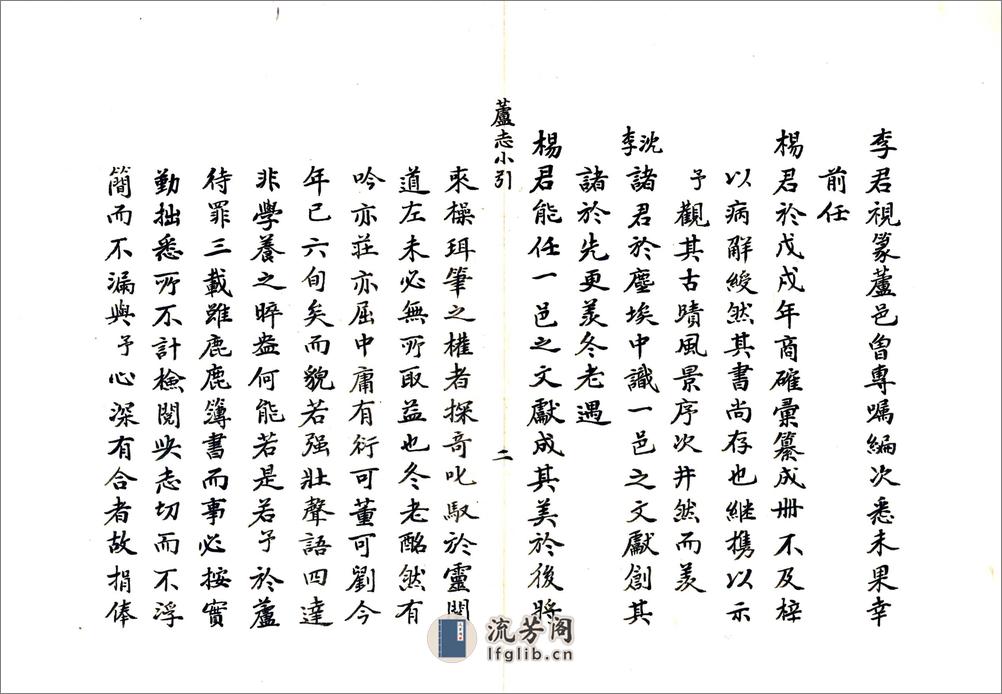 李君視篆蘆邑曾專囑編次悉未果幸
前任
楊君於戊戌年商確彙纂成冊不及梓
以病觧綬然其書尚存也継攜以示
予觀其古蹟風景序次井然而羡
沈李諸君於塵埃中識一邑之文獻創其
諸於先更羡冬老遇
楊君能任一邑之文獻成其美於後將
蘆志小引
二
来橾珥筆之權者探奇叱馭於靈閞
道左未必無所取益也冬老酩然有
吟亦莊亦屈中庸有衍可董可劉今
年已六旬矣而貌若强壯聲語四達
非學養之睟盎何能若是若予於蘆
待罪三載雖鹿鹿簿書而事必按實
勤拙悉所不計檢閲此志切而不浮
簡而不漏與予心深有合者故捐俸
流芳阁
lfglib.cn